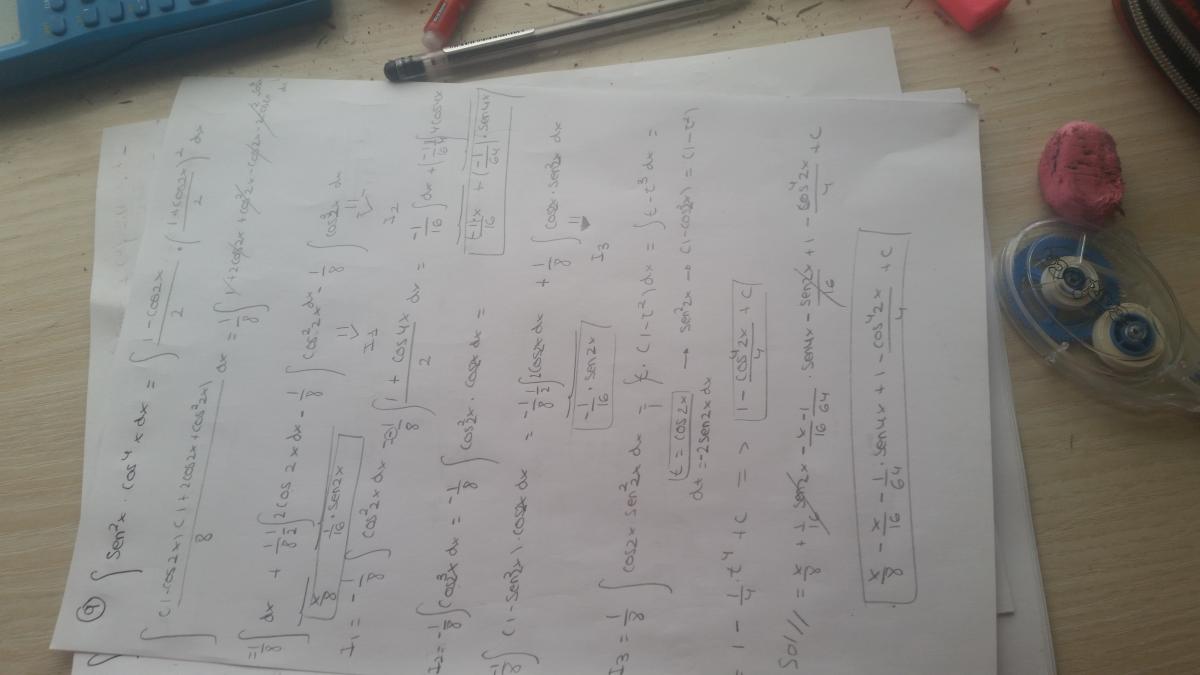 ④ ∫ Sen²x · cos⁴x dx = ∫ (1 - cos2x)/2 · ((1 + cos2x)/2)² dx
∫ (1 - cos2x)(1 + 2cos2x + cos²2x)/8 dx = 1/8 ∫ 1 + 2cos2x + cos²2x - cos2x - 2cos²2x
= 1/8 ∫ dx + 1/8 1/2 ∫ 2cos2x dx - 1/8 ∫ cos²2x dx - 1/8 ∫ cos³2x dx
x/8 1/16 · sen2x I1 I2
I1 = -1/8 ∫ cos²2x dx = -1/8 ∫ (1 + cos4x)/2 dx = -1/16 ∫ dx + (-1/64) ∫ 4cos4x
-1/16 x + (-1/64) · sen4x
I2 = -1/8 ∫ cos³2x dx = -1/8 ∫ cos²2x · cos2x dx =
-1/8 ∫ (1 - sen²2x) · cos2x dx = -1/8 1/2 ∫ 2cos2x dx + 1/8 ∫ cos2x · sen²2x dx
-1/16 · sen2x I3
I3 = 1/8 ∫ cos2x · sen²2x dx = ∫ t · (1 - t²) dx = ∫ t - t³ dx =
t = cos2x → sen²2x → (1 - cos²2x) = (1 - t²)
dt = -2sen2x dx
= 1 - 1/4 · t⁴ + C => 1 - cos⁴2x/4 + C
Sol // = x/8 + 1/16 sen2x - x/16 - 1/64 · sen4x - sen2x/16 + 1 - cos⁴2x/4 + C
x/8 - x/16 - 1/64 · sen4x + 1 - cos⁴2x/4 + C